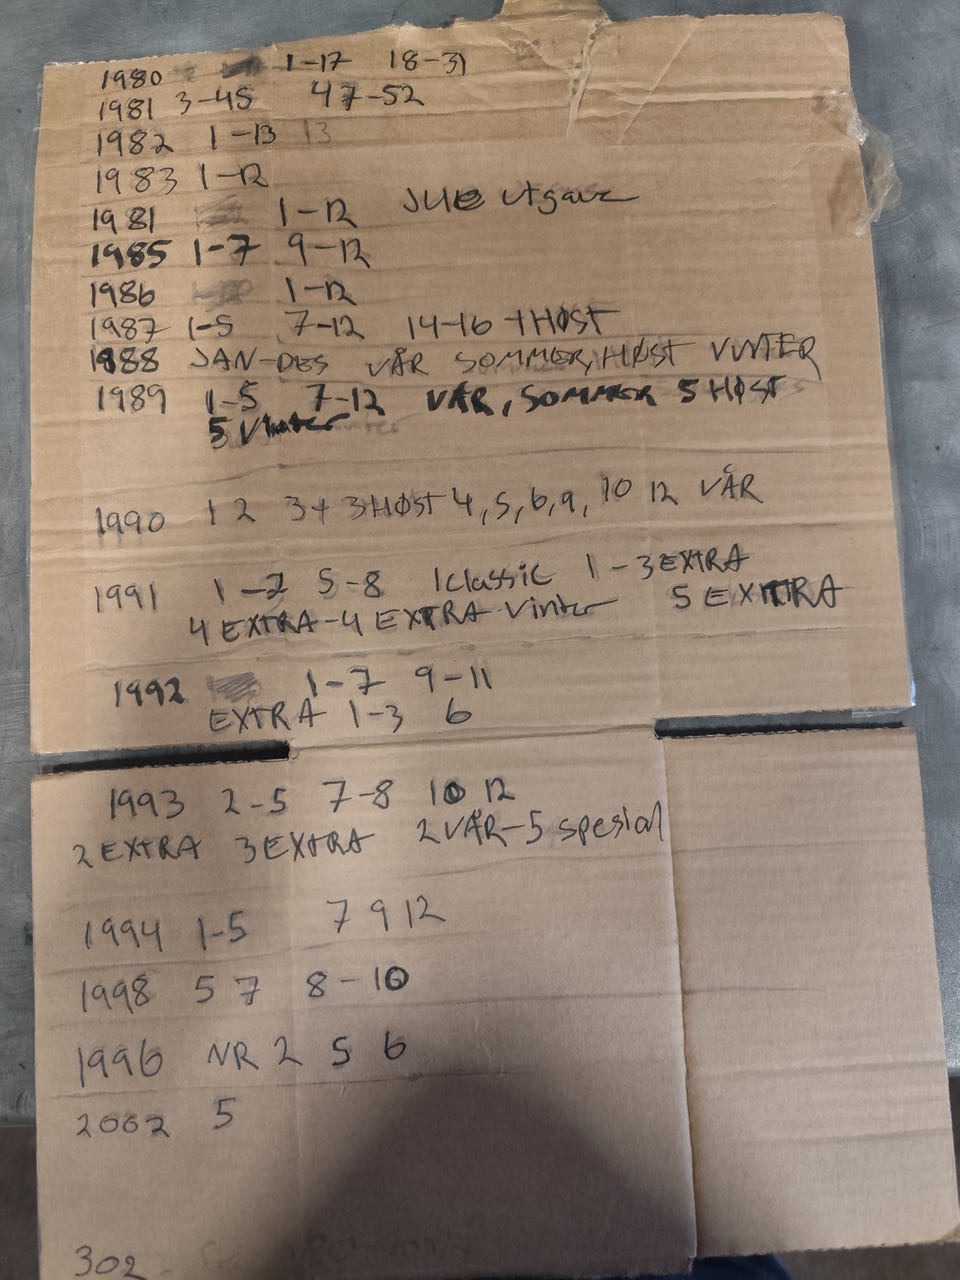 1980 1-17 18-31
1981 3-45 47-52
1982 1-13 13
1983 1-12
1981 1-12 JULE utgave
1985 1-7 9-12
1986 1-12
1987 1-5 7-12 14-16 +HØST
1988 JAN-DES VÅR SOMMER, HØST VINTER
1989 1-5 7-12 VÅR, SOMMER 5 HØST
5 Vinter
1990 1 2 3+3HØST 4,5,6,9, 10 12 VÅR
1991 1-2 5-8 1classic 1-3EXTRA
4 EXTRA-4 EXTRA Vinter 5 EXTRA
1992 1-7 9-11
EXTRA 1-3 6
1993 2-5 7-8 10 12
2 EXTRA 3 EXTRA 2VÅR-5 spesial
1994 1-5 7 9 12
1998 5 7 8-10
1996 NR 2 5 6
2002 5
302